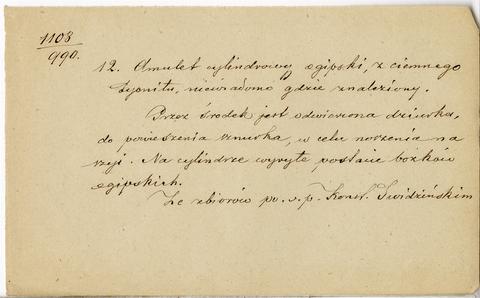 1108
990.
12. Amulet cylindrowy egipski, z ciemnego
syenitu, niewiadomo gdzie znaleziony.
Przez środek jest odwiercona dziurka,
do powieszenia sznurka, w celu noszenia na
szyi. Na cylindrze wyryte postacie bożków
egipskich.
Ze zbiorów po ś. p. Konst. Świdzińskim